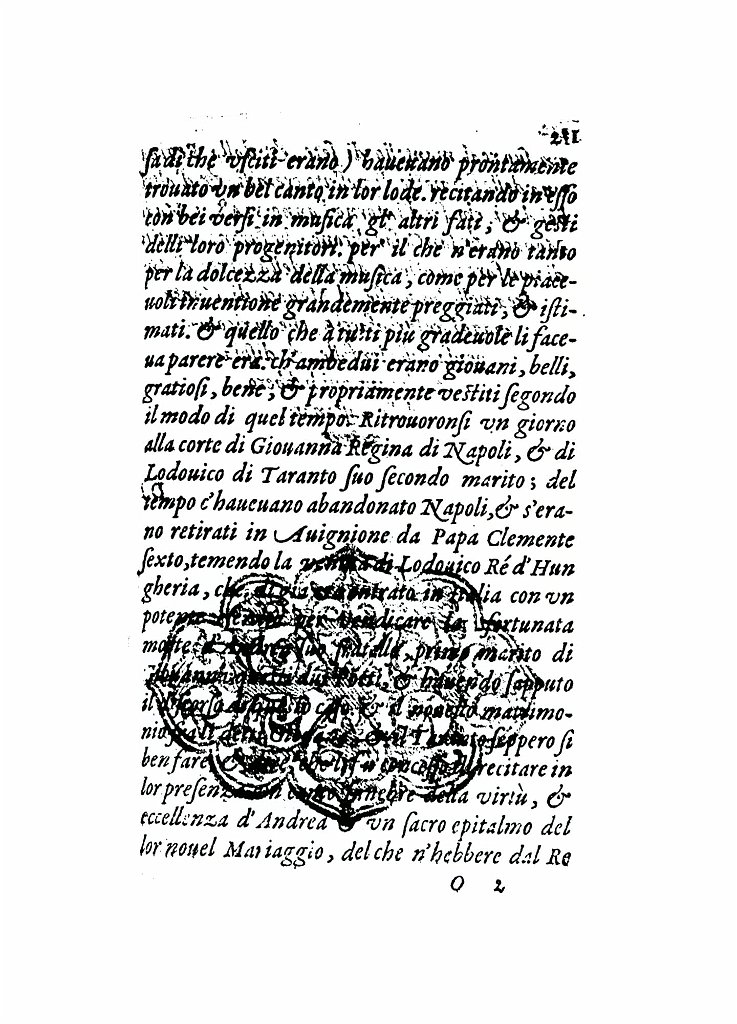 211
sadi che vsciti erano) haueuano prontamente
trouato vn bel canto in lor lode. recitando in esso
con bei versi in musica gl' altri fati, & gesti
delli loro progenitori. per il che n'erano tanto
per la dolcezza della musica, come per le piace-
uoli inuentione grandemente preggiati, & isti-
mati. & quello che à tutti più gradeuole li face-
ua parere era. ch'ambedui erano giouani, belli,
gratiosi, bene, & propriamente vestiti segondo
il modo di quel tempo. Ritrouoronsi vn giorno
alla corte di Giouanna Regina di Napoli, & di
Lodouico di Taranto suo secondo marito; del
tempo c'haueuano abandonato Napoli, & s'era-
no retirati in Auignione da Papa Clemente
sexto, temendo la venuta di Lodouico Ré d'Hun
gheria, che di gia era entrato in Italia con vn
potente per vendicare la sfortunata
morte d'Andrea suo fratello, primo marito di
Giouanna. questi dui Poeti, & hauendo saputo
il discorso di questo caso & il nouello matrimo-
Taranto seppero si
ben fare che li fu concesso il recitare in
lor presenza vn canto funebre della virtù, &
eccellenza d'Andrea & vn sacro epitalmo del
lor nouel Mariaggio, del che n'hebbere dal Re
O 2